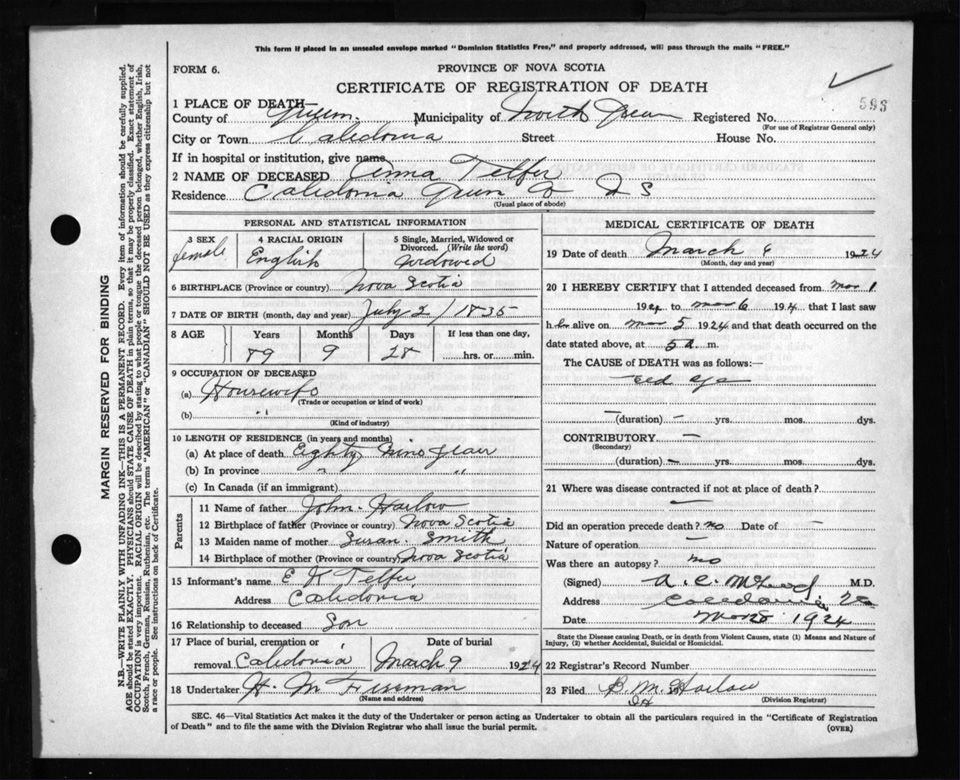 This form if placed in an unsealed envelope marked "Dominion Statistics Free," and properly addressed, will pass through the mails "FREE."
FORM 6.
PROVINCE OF NOVA SCOTIA
CERTIFICATE OF REGISTRATION OF DEATH
593
1 PLACE OF DEATH—
County of Queens Municipality of North Registered No.
(For use of Registrar General only)
City or Town Caledonia Street House No.
If in hospital or institution, give name
2 NAME OF DECEASED Anna Telfer
Residence Caledonia Queen Co N S
(Usual place of abode)
PERSONAL AND STATISTICAL INFORMATION
3 SEX female
4 RACIAL ORIGIN English
5 Single, Married, Widowed or Divorced. (Write the word) Widowed
6 BIRTHPLACE (Province or country) Nova Scotia
7 DATE OF BIRTH (month, day and year) July 2/1835
8 AGE Years Months Days If less than one day,
89 9 28 hrs. or min.
9 OCCUPATION OF DECEASED
(a) Housewife
(Trade or occupation or kind of work)
(b) "
(Kind of industry)
10 LENGTH OF RESIDENCE (in years and months)
(a) At place of death Eighty Nine Year
(b) In province " "
(c) In Canada (if an immigrant)
Parents
11 Name of father John Harlow
12 Birthplace of father (Province or country) Nova Scotia
13 Maiden name of mother Susan Smith
14 Birthplace of mother (Province or country) Nova Scotia
15 Informant's name E K Telfer
Address Caledonia
16 Relationship to deceased Son
17 Place of burial, cremation or removal Caledonia
Date of burial March 9 1924
18 Undertaker H. M Freeman
(Name and address)
MEDICAL CERTIFICATE OF DEATH
19 Date of death March 6 1924
(Month, day and year)
20 I HEREBY CERTIFY that I attended deceased from Mar 1
1924 to Mar 6 1924 that I last saw
h er alive on Mar 5 1924 and that death occurred on the
date stated above, at 5 a. m.
The CAUSE of DEATH was as follows:—
old age
— (duration) — yrs. mos. dys.
CONTRIBUTORY —
(Secondary)
(duration) — yrs. mos. dys.
21 Where was disease contracted if not at place of death?
—
Did an operation precede death? no Date of —
Nature of operation —
Was there an autopsy? no
(Signed) A. C. McLeod M.D.
Address Caledonia
Date 1924
State the Disease causing Death, or in death from Violent Causes, state (1) Means and Nature of Injury, (2) whether Accidental, Suicidal or Homicidal.
22 Registrar's Record Number
23 Filed B. M. Harlow
(Division Registrar)
SEC. 46—Vital Statistics Act makes it the duty of the Undertaker or person acting as Undertaker to obtain all the particulars required in the "Certificate of Registration
of Death" and to file the same with the Division Registrar who shall issue the burial permit.
(OVER)
MARGIN RESERVED FOR BINDING
N.B.—WRITE PLAINLY WITH UNFADING INK—THIS IS A PERMANENT RECORD. Every item of information should be carefully supplied.
AGE should be stated EXACTLY. PHYSICIANS should STATE CAUSE OF DEATH in plain terms, so that it may be properly classified. Exact statement of
OCCUPATION is very important. RACIAL ORIGIN will be described by stating to what people or tongue the deceased person belonged, whether English, Irish,
Scotch, French, German, Russian, Ruthenian, etc. The terms "AMERICAN" or "CANADIAN" SHOULD NOT BE USED as they express citizenship but not
a race or people. See instructions on back of Certificate.